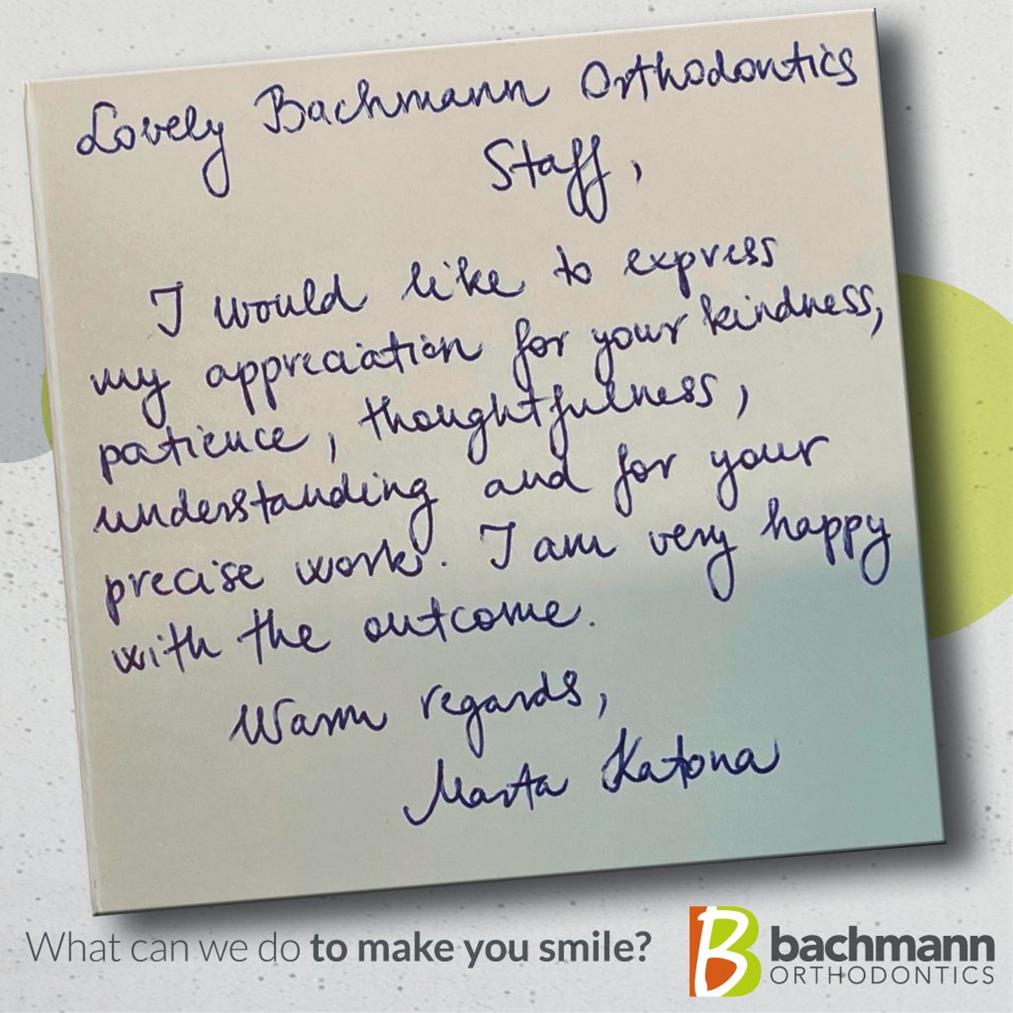 Lovely Bachmann Orthodontics
Staff,
I would like to express
my appreciation for your kindness,
patience, thoughtfulness,
understanding and for your
precise work. I am very happy
with the outcome.
Warm regards,
Marta Katona
What can we do to make you smile?
B
bachmann
ORTHODONTICS